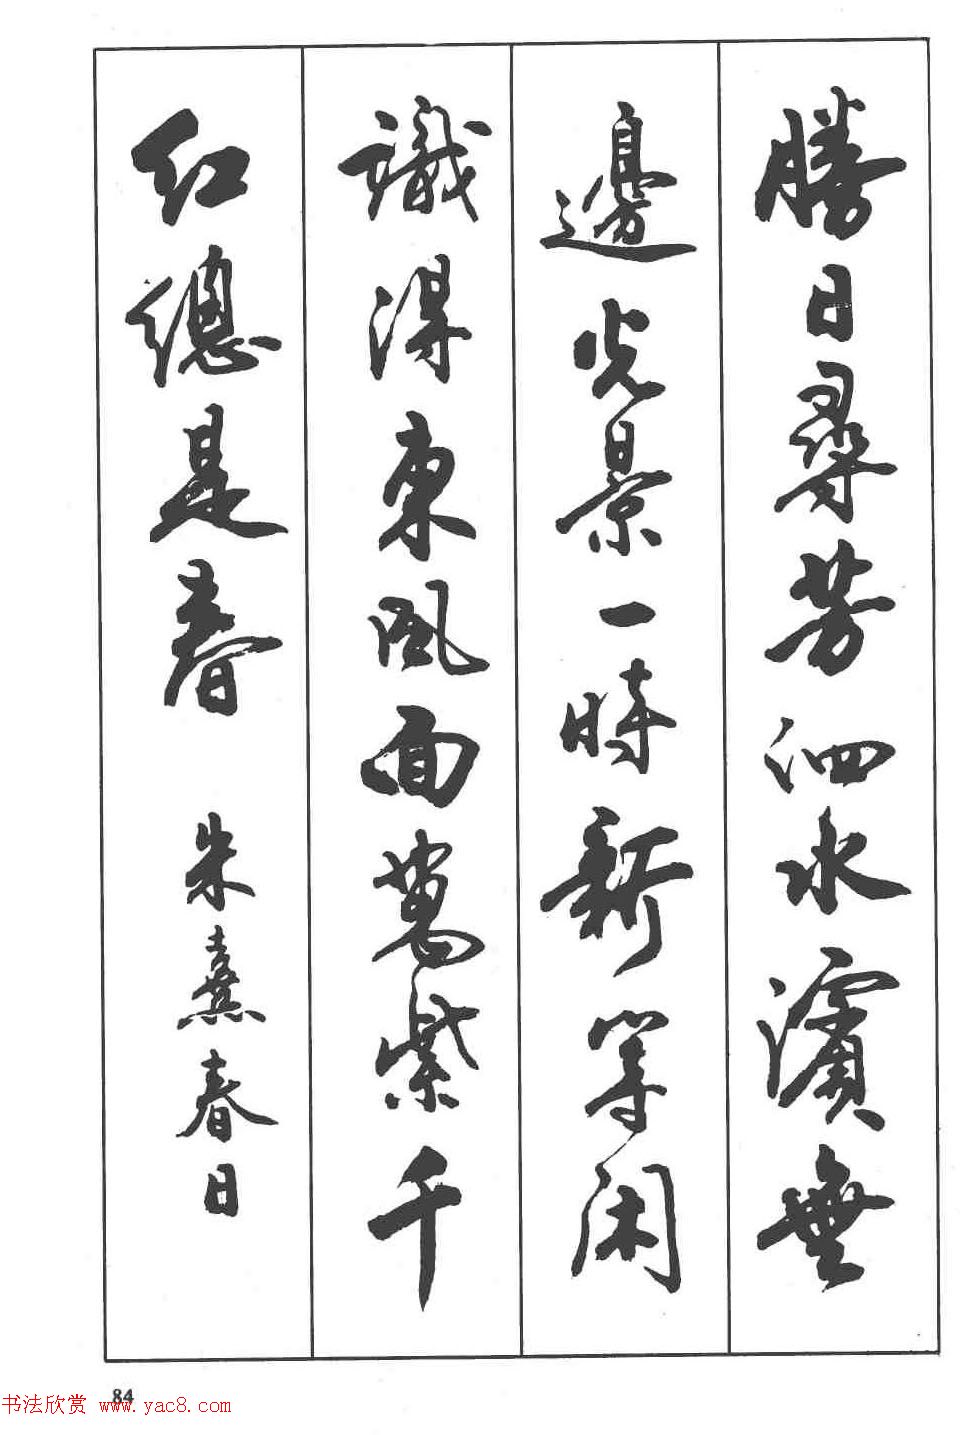 勝日尋芳泗水濱無
邊光景一時新等閑
識得東風面萬紫千
紅總是春 朱熹春日
84
书法欣赏 www.yac8.com